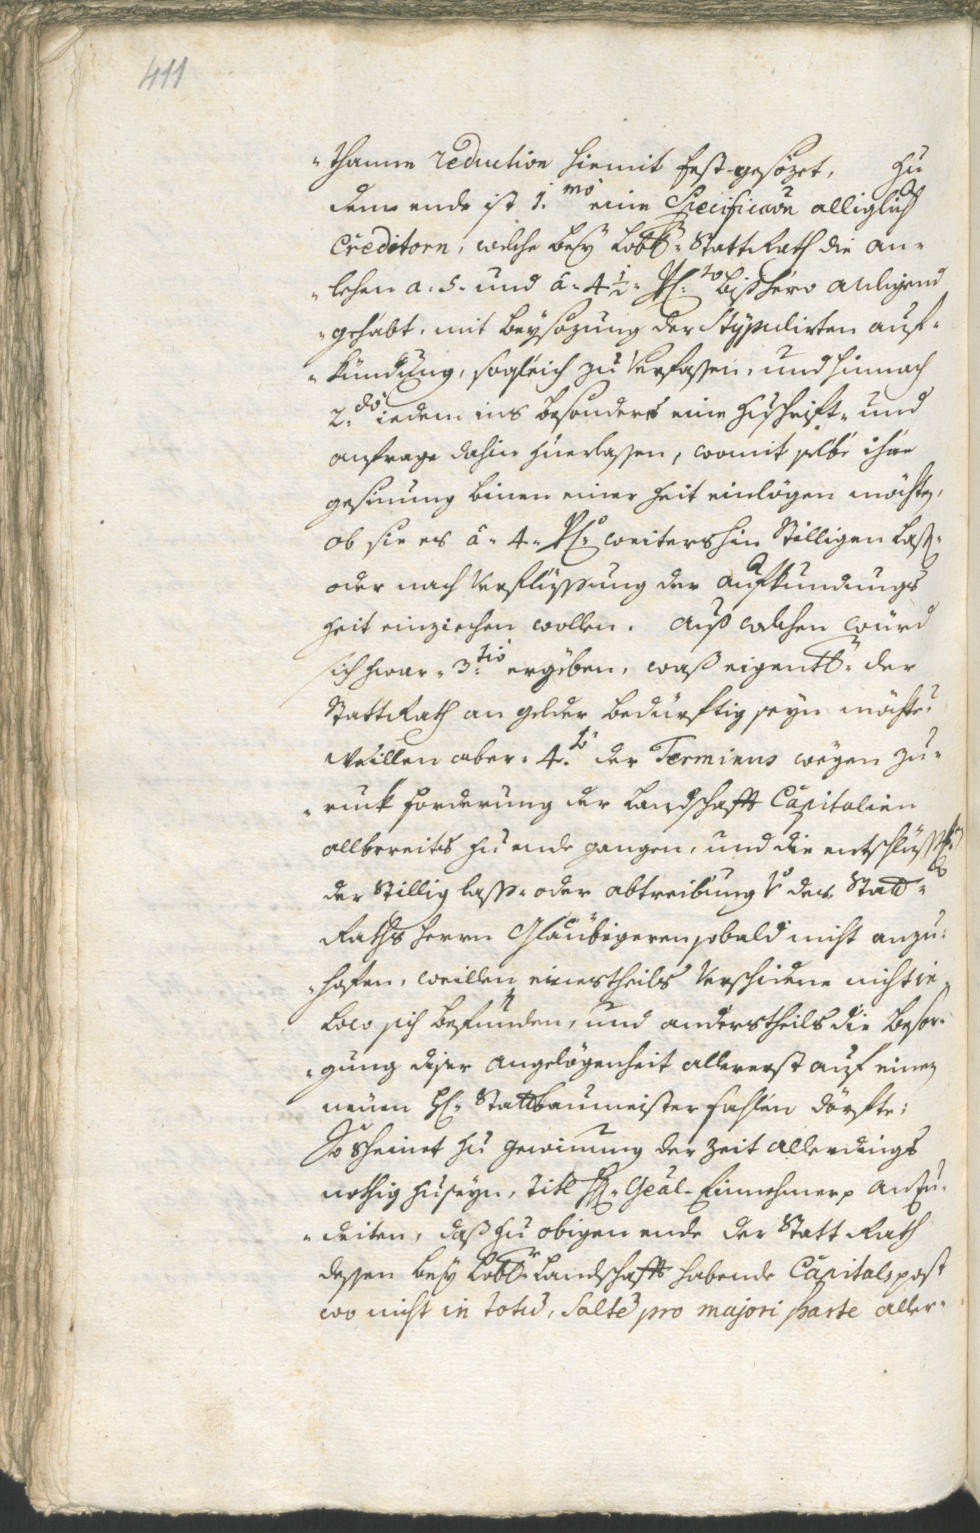 411
"thanne reduction hiemit fest-gesözet, Zu
deme ende ist 1.mo eine Specification alliglich
Creditorn, welche bey Löbl: StattRath die an-
"lehen a: 5. und à 4½ pCto bißhero anligend
"gehabt, mit beysözung der Stypulirten auf-
"kündung, sogleich zu verfassen, und hinnach
2.do iedem ins besonders eine Zuschrifft- und
anfrage dahin zuerlassen, womit selbe ihre
gesinnung binen einer Zeit einlögen möchten,
ob sie es à 4. pCto weitershin Stilligen lass-
oder nach verflüssung der aufkündungs
Zeit einziechen wollen. Auß welchen würd
sich zwar 3.tio ergeben, waß eigentl: der
StattRath an gelder bedürftig seyn möchte:
Weillen aber 4.to der Terminus wegen Zu-
"ruck forderung der Landschafft Capitalien
allbereits zu ende gangen, und die entschlüss:
der Stillig lass- oder abtreibung des Statt-
Raths Herrn Glaubigeren sobald nicht anzu-
"hofen, weillen einestheils verschidene nicht in
Loco sich befunden, und anderstheils die besor-
"gung diser angelögenheit allererst auf einen
neuen H: Stattbaumeister fahlen dörfte:
So scheinet zu gewinung der Zeit allerdings
nothig zuseyn, Titl H: Gral-Einnehmer anzu-
"deiten, daß zu obigen ende der Statt Rath
dessen bey Löbl: Landschafft habende Capitalspost
wo nicht in toto, salte pro majori parte aller-